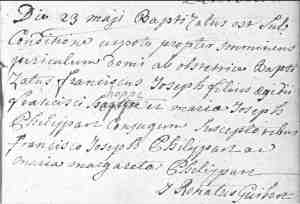 Die 23 maji Baptizatus est Sub
Conditione utpote propter Imminens
periculum domi ab obstetrice Bapti
Zatus franciscus Joseph filius Egidii
hoppe
francisci et maria Joseph
Philippart Conjugum Susceptoribus
francisco Joseph Philippart ac
maria margareta Philippart
J Renatus Guibert